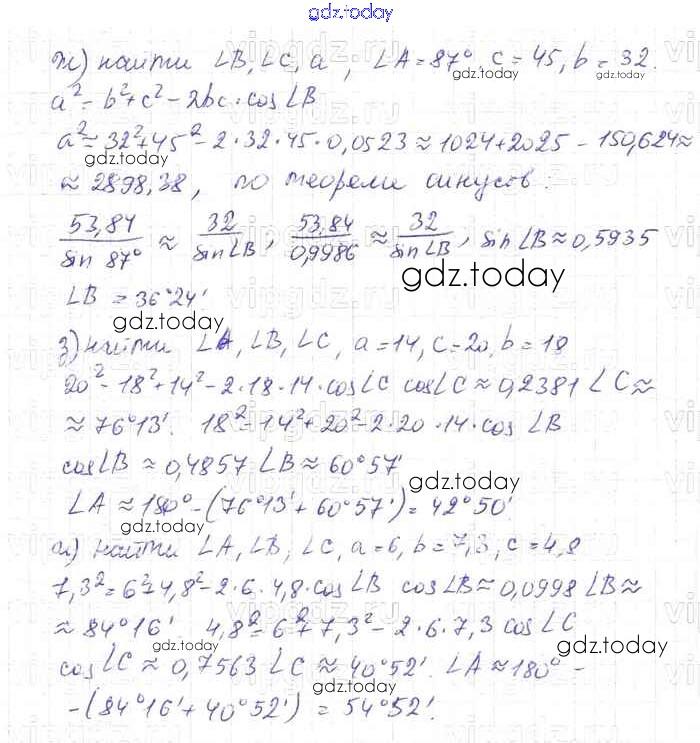 gdz.today
ж) найти ∠B, ∠C, a, ∠A = 87°, c = 45, b = 32.
gdz.today
a² = b² + c² - 2bc · cos∠B
a² ≈ 32² + 45² - 2 · 32 · 45 · 0,0523 ≈ 1024 + 2025 - 150,624 ≈
gdz.today
≈ 2898,38, по теореме синусов:
53,84 / sin 87° ≈ 32 / sin∠B, 53,84 / 0,9986 ≈ 32 / sin∠B, sin∠B ≈ 0,5935
gdz.today
∠B = 36°24'.
gdz.today
з) найти ∠A, ∠B, ∠C, a = 14, c = 20, b = 18
20² - 18² + 14² - 2 · 18 · 14 · cos∠C cos∠C ≈ 0,2381 ∠C ≈
≈ 76°13'. 18² = 14² + 20² - 2 · 20 · 14 · cos∠B
cos∠B ≈ 0,4857 ∠B ≈ 60°57'
gdz.today
∠A ≈ 180° - (76°13' + 60°57') = 42°50'.
gdz.today
и) найти ∠A, ∠B, ∠C, a = 6, b = 7,3, c = 4,8
7,3² = 6² + 4,8² - 2 · 6 · 4,8 · cos∠B cos∠B ≈ 0,0998 ∠B ≈
gdz.today
≈ 84°16'. 4,8² = 6² + 7,3² - 2 · 6 · 7,3 cos∠C
gdz.today
cos∠C ≈ 0,7563 ∠C ≈ 40°52'. ∠A ≈ 180° -
gdz.today
- (84°16' + 40°52') = 54°52'.